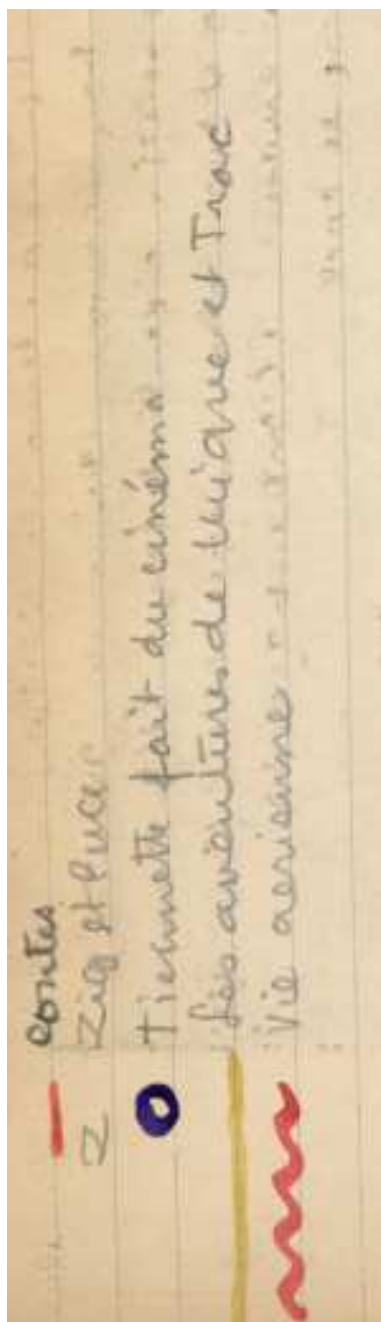 contes
Z Zig et Puce
Tiennette fait du cinéma
Les aventures de et Trac
Vie aerienne